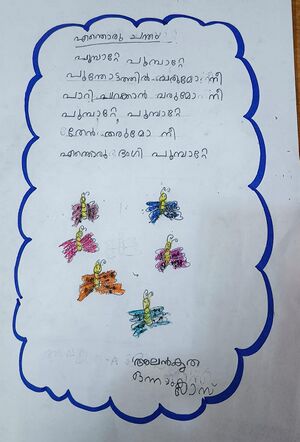 എന്തൊരു ചന്തം
പൂമ്പാറ്റേ പൂമ്പാറ്റേ
പൂന്തോട്ടത്തിൽ വരുമോ നീ
പാറി പറക്കാൻ വരുമോ നീ
പൂമ്പാറ്റേ, പൂമ്പാറ്റേ
തേൻ തരുമോ നീ
എന്തൊരു ഭംഗി പൂമ്പാറ്റേ
അലൻകൃത
ഒന്നാം ക്ലാസ്